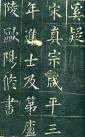 奚疑
宋真宗咸平三
年進士及第廬
陵歐陽脩書